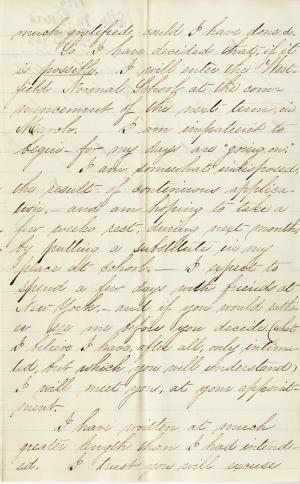 much gratified, could I have done so.
So I have decided that, if it
is possible, I will enter the West-
field Normal School, at the com-
mencement of the next term, in
March. I am impatient to
begin - for my days are "going on."
I am somewhat indisposed,
the result of continuous applica-
tion, - and am hoping to take a
few weeks rest, during next month,
by putting a substitute in my
place at school. - I expect to
spend a few days with friends at
New York, - and if you would rath-
er see me before you decide (what
I believe I have, after all, only intima-
ted, but which you will understand)
I will meet you, at your appoint-
ment.
I have written at much
greater length than I had intend-
ed. I trust you will excuse